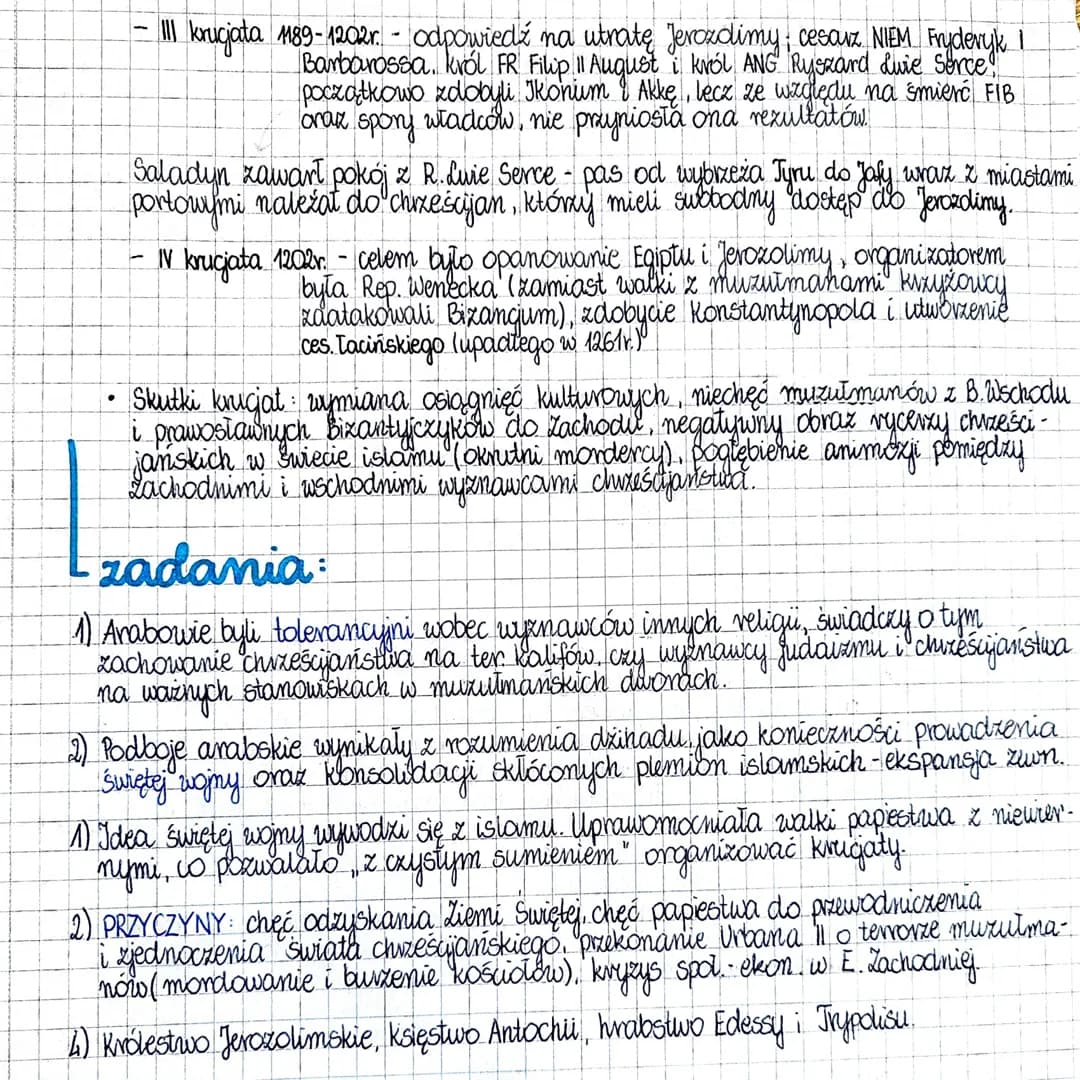 - III krucjata 1189-1202r. - odpowiedź na utratę Jerozolimy; cesarz NIEM Fryderyk I
Barbarossa, król FR Filip II August i król ANG Ryszard Lwie Serce;
początkowo zdobyli Ikonium i Akkę, lecz ze względu na śmierć FIB
oraz spory władców, nie przyniosła ona rezultatów.
Saladyn zawarł pokój z R. Lwie Serce - pas od wybrzeża Tyru do Jafy wraz z miastami
portowymi należał do chrześcijan, którzy mieli swobodny dostęp do Jerozolimy.
- IV krucjata 1202r. - celem było opanowanie Egiptu i Jerozolimy, organizatorem
była Rep. Wenecka (zamiast walki z muzułmanami krzyżowcy
zaatakowali Bizancjum), zdobycie Konstantynopola i utworzenie
ces. Łacińskiego (upadłego w 1261r.)
• Skutki krucjat: wymiana osiągnięć kulturowych, niechęć muzułmanów z B. Wschodu
i prawosławnych Bizantyjczyków do Zachodu, negatywny obraz rycerzy chrześci-
jańskich w świecie islamu (okrutni mordercy), pogłębienie animozji pomiędzy
zachodnimi i wschodnimi wyznawcami chrześcijaństwa.
zadania:
1) Arabowie byli tolerancyjni wobec wyznawców innych religii, świadczy o tym
zachowanie chrześcijaństwa na ter. kalifów, czy wyznawcy judaizmu i chrześcijaństwa
na ważnych stanowiskach w muzułmańskich dworach.
2) Podboje arabskie wynikały z rozumienia dżihadu, jako konieczności prowadzenia
świętej wojny oraz konsolidacji skłóconych plemion islamskich - ekspansja zewn.
1) Idea świętej wojny wywodzi się z islamu. Uprawomocniała walki papiestwa z niewier-
nymi, co pozwalało „z czystym sumieniem" organizować krucjaty.
2) PRZYCZYNY: chęć odzyskania Ziemi Świętej, chęć papiestwa do przewodniczenia
i zjednoczenia świata chrześcijańskiego, przekonanie Urbana II o terrorze muzułma-
nów (mordowanie i burzenie kościołów), kryzys społ.-ekon. w E. Zachodniej.
4) Królestwo Jerozolimskie, księstwo Antochii, hrabstwo Edessy i Trypolisu.